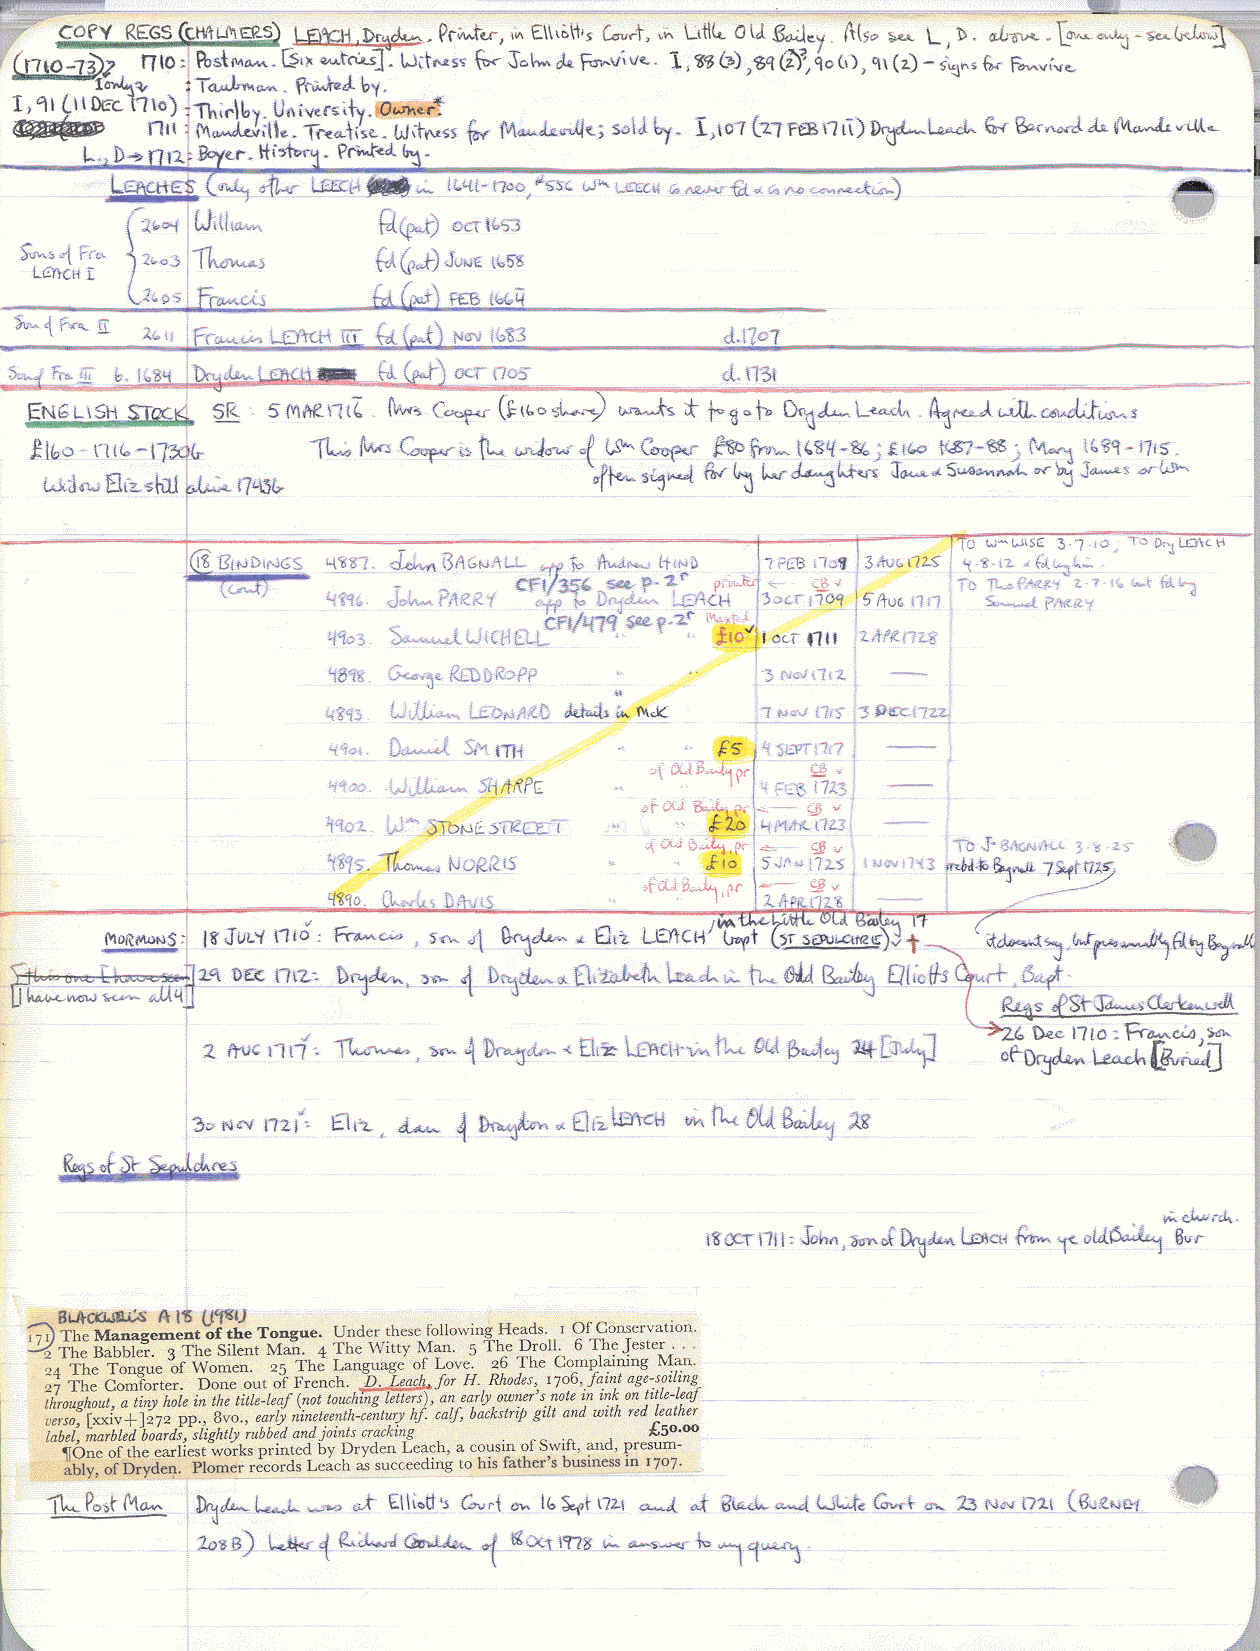 COPY REGS (CHALMERS) LEACH, Dryden. Printer, in Elliott's Court, in Little Old Bailey. Also see L, D. above. [one only - see below]
(1710-73)? 1710: Postman. [Six entries]. Witness for John de Fonvive. I, 88(3), 89(2)?, 90(1), 91(2) - signs for Fonvive
I only? : Taubman. Printed by.
I, 91 (11 DEC 1710): Thirlby. University. Owner*
1711: Mandeville. Treatise. Witness for Mandeville; sold by. I, 107 (27 FEB 1711) Dryden Leach for Bernard de Mandeville
L., D → 1712: Boyer. History. Printed by.
LEACHES (only other LEECH in 1641-1700, #556 Wm LEECH is never fd & is no connection)
2604 William fd (pat) OCT 1653
Sons of Fra LEACH I 2603 Thomas fd (pat) JUNE 1658
2605 Francis fd (pat) FEB 1664
Son of Fra II 2611 Francis LEACH III fd (pat) NOV 1683 d. 1707
Son of Fra III b. 1684 Dryden LEACH fd (pat) OCT 1705 d. 1731
ENGLISH STOCK SR: 5 MAR 1716. Mrs. Cooper (£160 share) wants it to go to Dryden Leach. Agreed with conditions
£160 - 1716 - 1730G This Mrs Cooper is the widow of Wm Cooper £80 from 1684-86; £160 1687-88; Mary 1689-1715.
Widow Eliz still alive 1743G often signed for by her daughters Jane & Susannah or by James or Wm
(18) BINDINGS 4887. John BAGNALL app to Andrew HIND 7 FEB 1709 3 AUG 1725 TO Wm WISE 3.7.10, TO Dry LEACH 4-8-12 & fd by him.
(cont) CF1/356 see p. 2r printer ← CB ✓
4896. John PARRY app to Dryden LEACH 3 OCT 1709 5 AUG 1717 TO Tho PARRY 2.7.16 but fd by Samuel PARRY
CF1/479 see p. 2r
4903. Samuel WICHELL " " £10 ✓ 1 OCT 1711 2 APR 1728
4898. George REDDROPP " " 3 NOV 1712 —
4893. William LEONARD details in McK 7 NOV 1715 3 DEC 1722
4901. Daniel SMITH " " £5 4 SEPT 1717 —
of Old Baily pr CB ✓
4900. William SHARPE " 4 FEB 1723 —
of Old Baily pr ← CB ✓
4902. Wm STONESTREET " £20 4 MAR 1723 —
of Old Baily, pr ← CB ✓ TO Jn BAGNALL 3.8.25
4895. Thomas NORRIS " " £10 5 JAN 1725 1 NOV 1743 rebd to Bagnall 7 Sept 1725,
of Old Baily, pr ← CB ✓
4890. Charles DAVIS 2 APR 1728 —
it doesn't say, but presumably fd by Bagnall
MORMONS: 18 JULY 1710✓: Francis, son of Dryden & Eliz LEACH, in the Little Old Bailey 17 bapt (ST SEPULCHRES) ✓ †
[This one I have seen] 29 DEC 1712: Dryden, son of Dryden & Elizabeth Leach in the Old Bailey Elliotts Court, Bapt.
[I have now seen all 4]
Regs of St James Clerkenwell
26 Dec 1710: Francis, son of Dryden Leach [Buried]
2 AUG 1717✓: Thomas, son of Draydon & Eliz LEACH in the Old Bailey 24 [July]
30 NOV 1721✓: Eliz, dau of Draydon & Eliz LEACH in the Old Bailey 28
Regs of St Sepulchres
18 OCT 1711: John, son of Dryden LEACH from ye old Bailey Bur in church.
BLACKWELL'S A18 (1981)
171 The Management of the Tongue. Under these following Heads. 1 Of Conservation.
2 The Babbler. 3 The Silent Man. 4 The Witty Man. 5 The Droll. 6 The Jester . . .
24 The Tongue of Women. 25 The Language of Love. 26 The Complaining Man.
27 The Comforter. Done out of French. D. Leach, for H. Rhodes, 1706, faint age-soiling
throughout, a tiny hole in the title-leaf (not touching letters), an early owner's note in ink on title-leaf
verso, [xxiv+]272 pp., 8vo., early nineteenth-century hf. calf, backstrip gilt and with red leather
label, marbled boards, slightly rubbed and joints cracking £50.00
¶One of the earliest works printed by Dryden Leach, a cousin of Swift, and, presum-
ably, of Dryden. Plomer records Leach as succeeding to his father's business in 1707.
The Post Man Dryden Leach was at Elliott's Court on 16 Sept 1721 and at Black and White Court on 23 NOV 1721 (BURNEY
208B) Letter of Richard Goulden of 18 OCT 1978 in answer to my query.